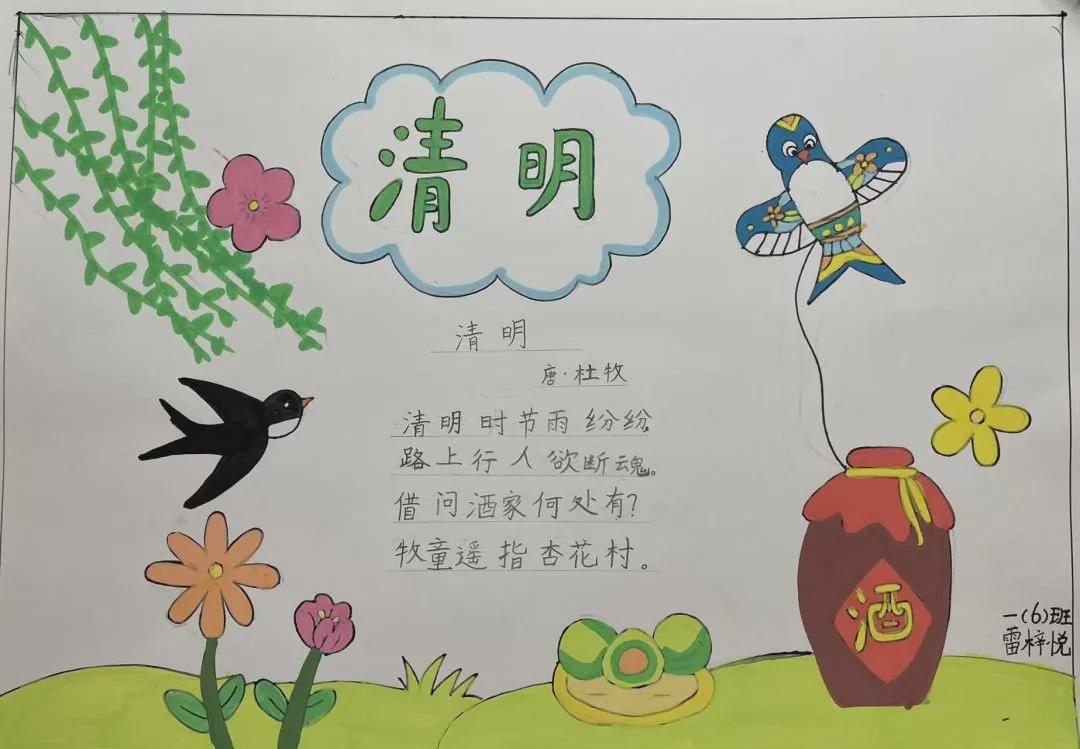 清明
清明
唐·杜牧
清明时节雨纷纷
路上行人欲断魂。
借问酒家何处有？
牧童遥指杏花村。
酒
一(6)班
雷梓悦